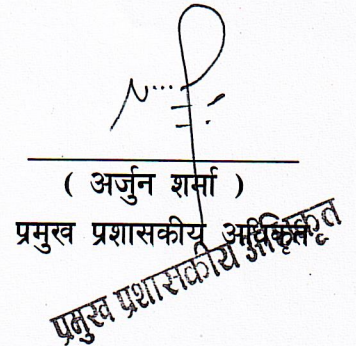 ( अर्जुन शर्मा )
प्रमुख प्रशासकीय अधिकृत
प्रमुख प्रशासकीय अधिकृत